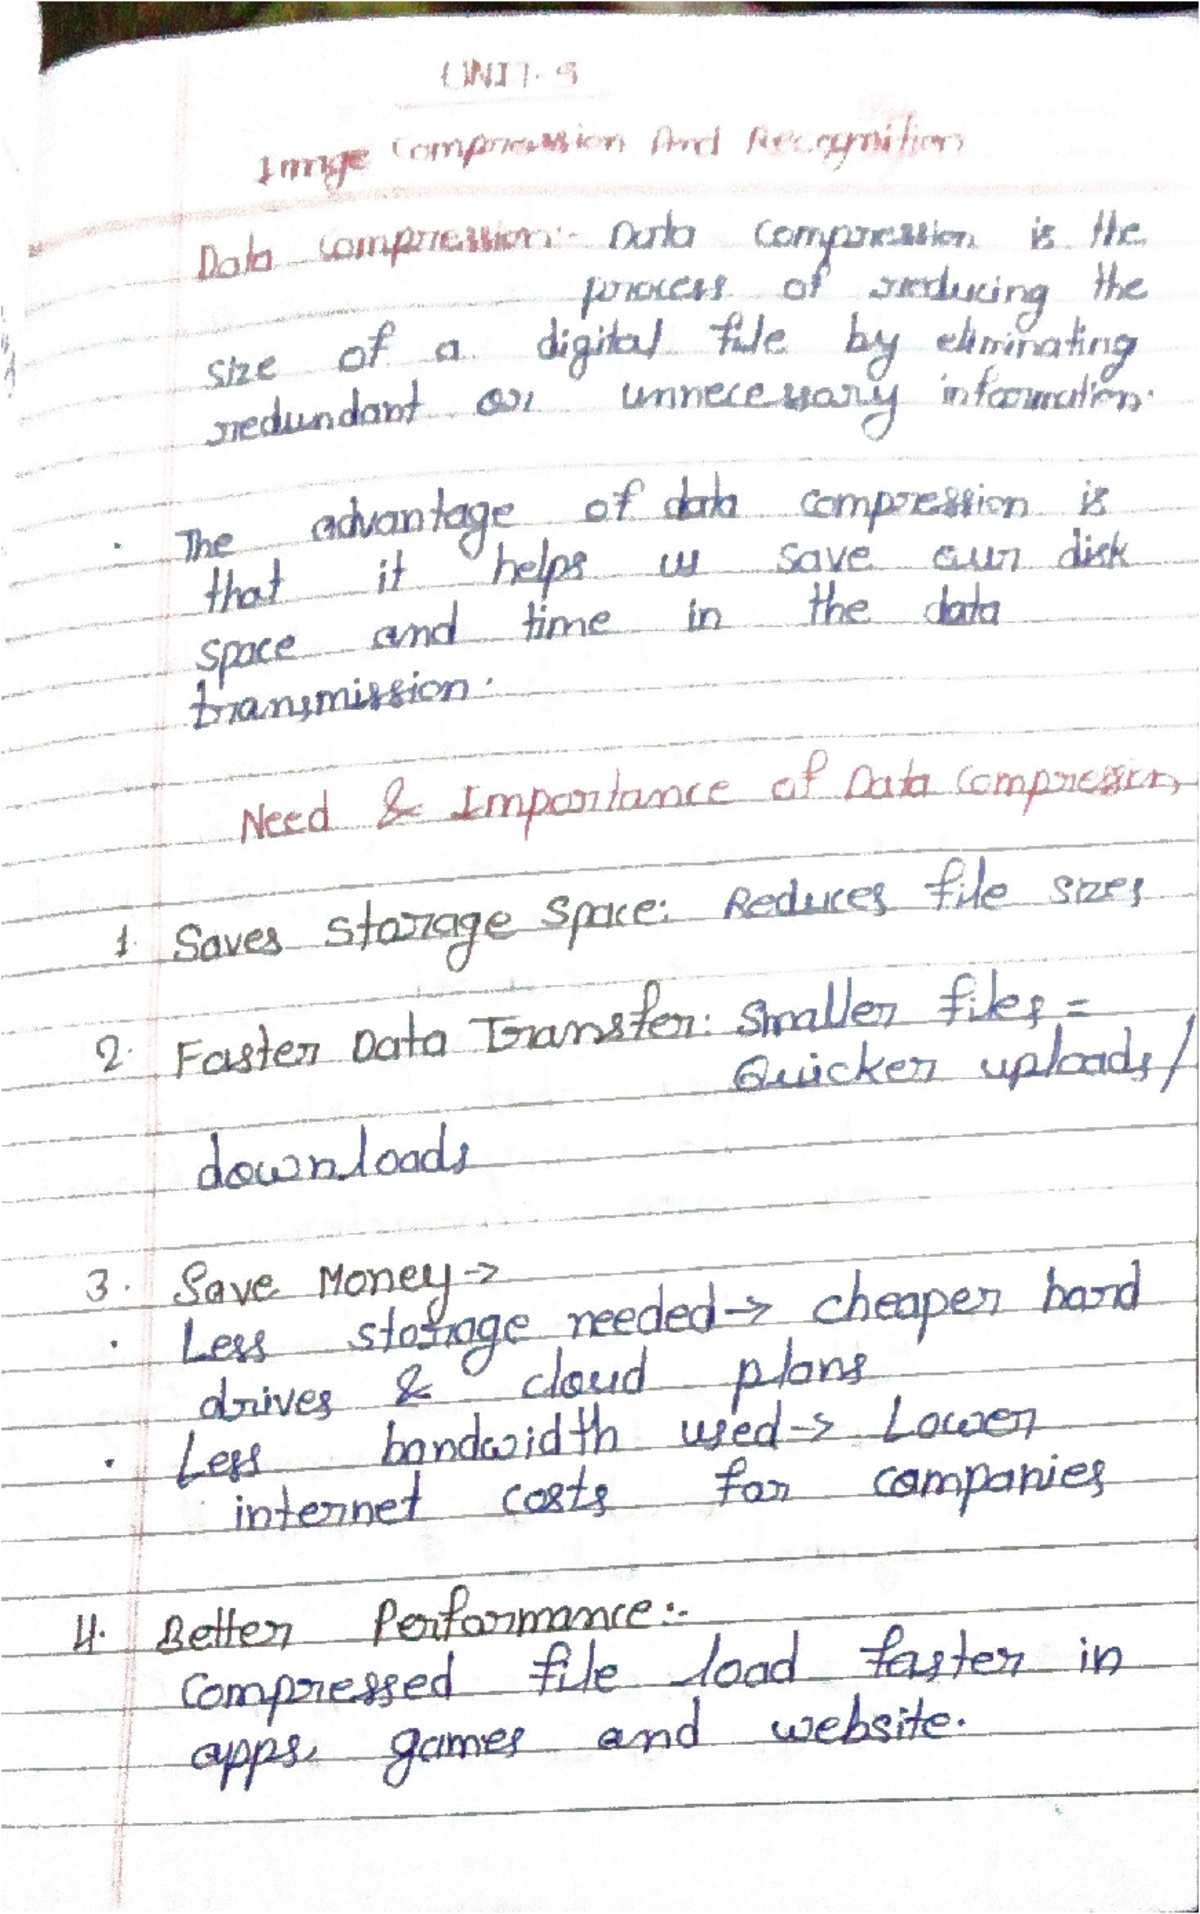 UNIT-5
Image Compression And Recognition
Data Compression:- Data compression is the
process of reducing the
size of a digital file by eliminating
redundant or unnecessary information.
• The advantage of data compression is
that it helps us save our disk
space and time in the data
transmission.
Need & Importance of Data Compression
1. Saves Storage Space: Reduces file sizes
2. Faster Data Transfer: Smaller files =
Quicker uploads/
downloads
3. Save Money->
• Less storage needed-> cheaper hard
drives & cloud plans
• Less bandwidth used-> Lower
internet costs for companies
4. Better Performance:-
Compressed file load faster in
apps, games and website.